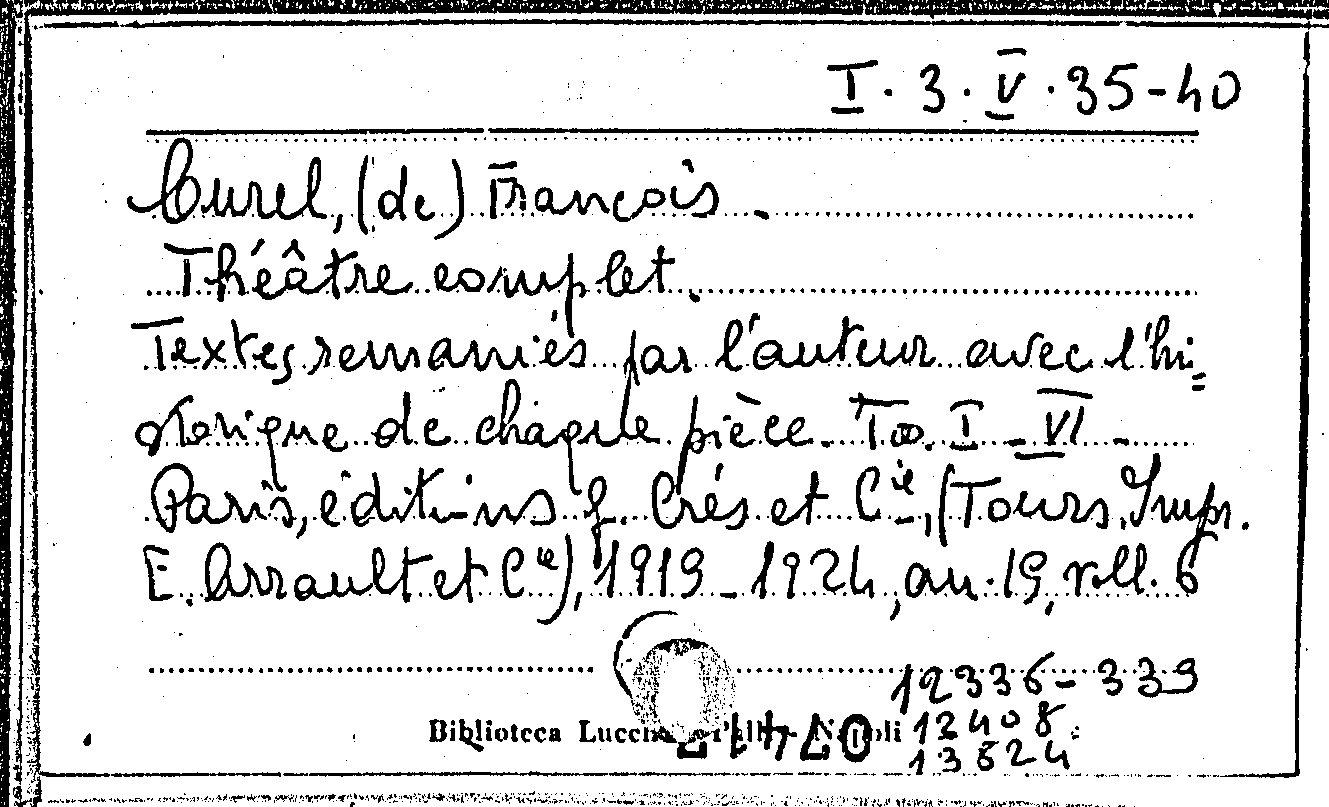 I. 3. V. 35-40
Curel, (de) François.
Théâtre complet.
Textes remaniés par l'auteur avec l'hi=
storique de chaque pièce. To. I - VI -
Paris, éditions G. Crés et Cie, (Tours, Imp.
E. Arrault et Cie), 1919-1924, au. 19, voll. 6
12336-339
Biblioteca Lucchesi Palli - Napoli 12408
13624